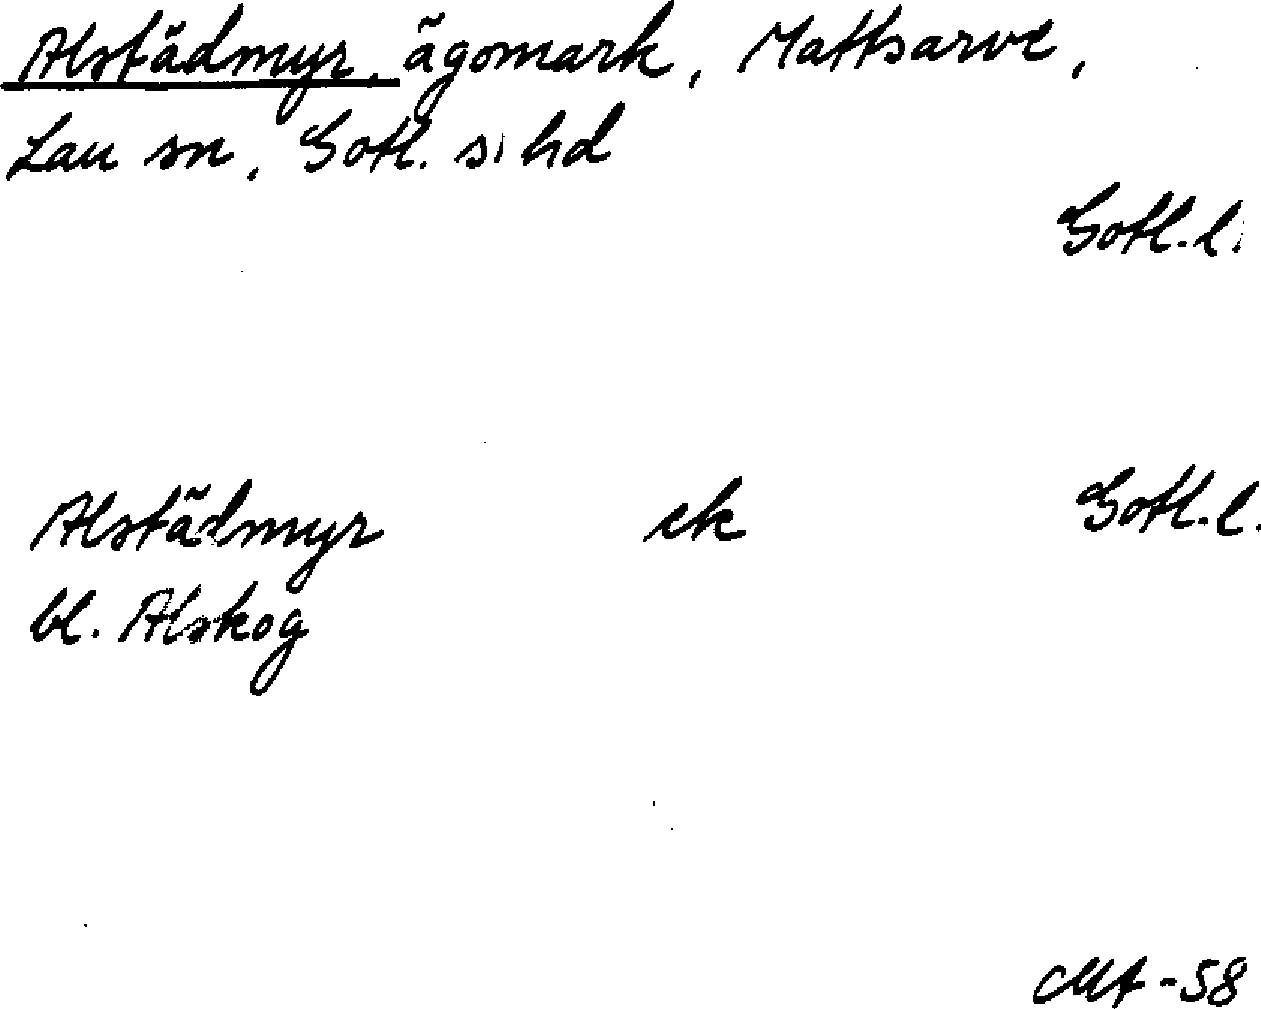 Alstädmyr, ägomark, Mattsarve,
Lau sn, Gotl. s. hd
Gotl. l.
Alstädmyr ek Gotl. l.
bl. Alskog
-58